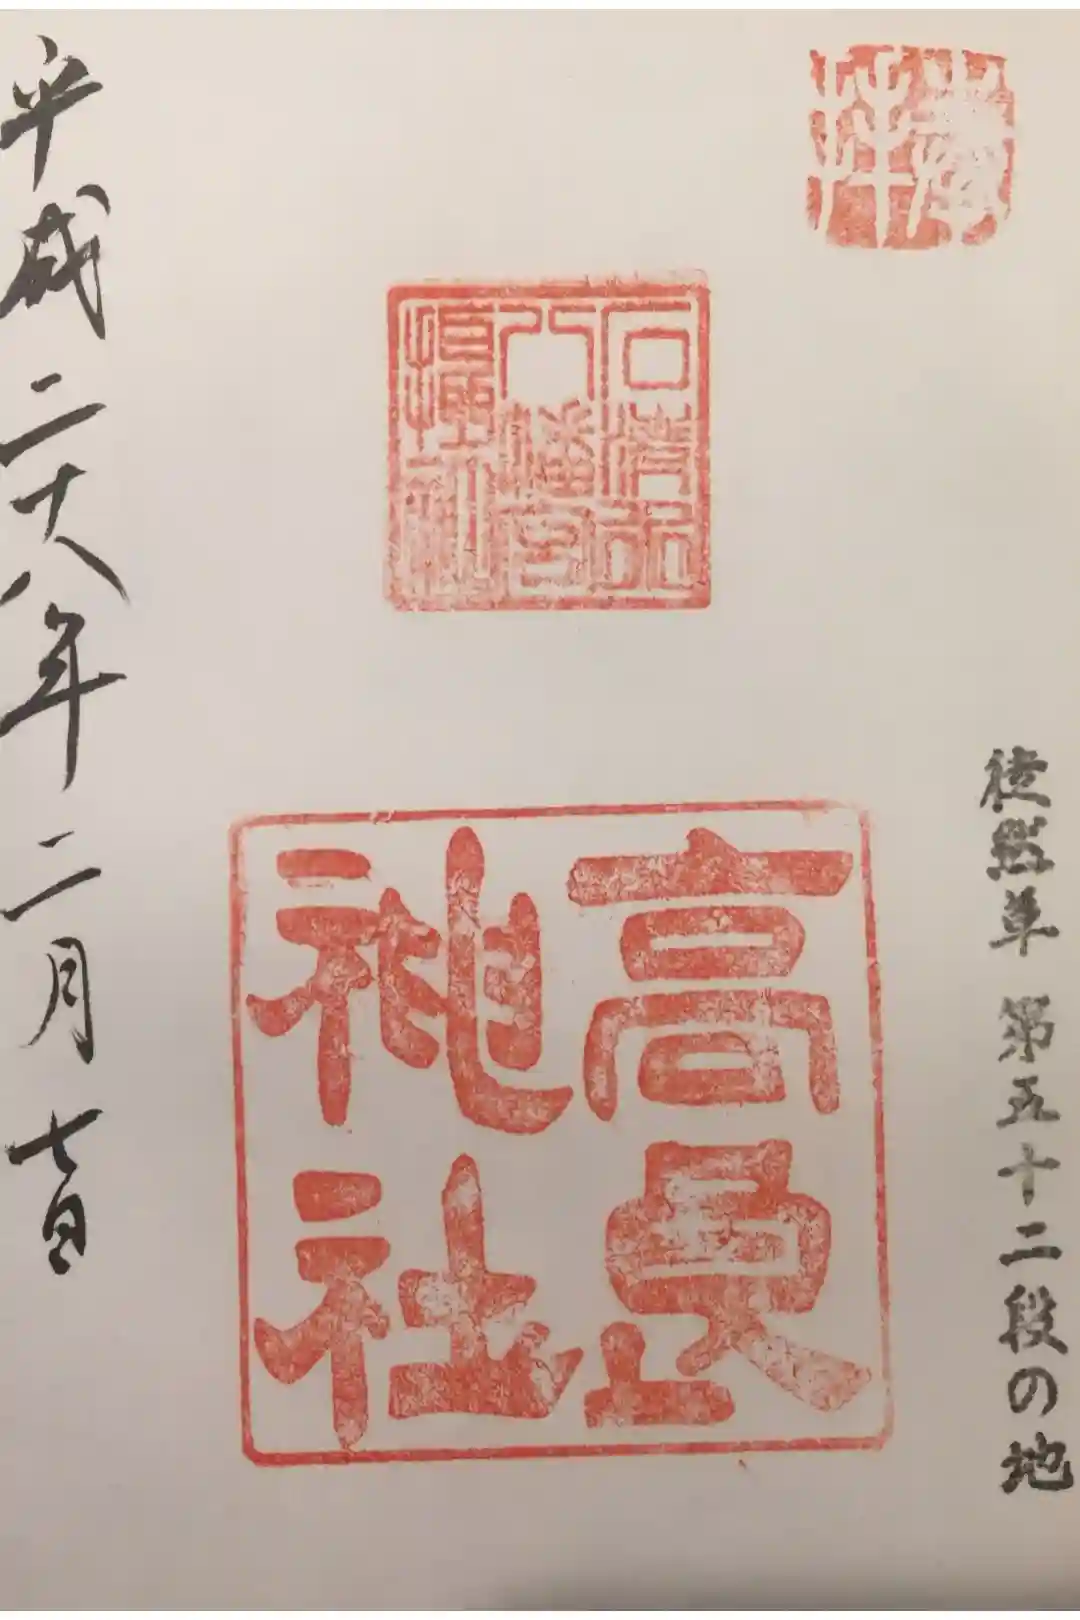 奉拝
徒然草 第五十二段の地
石清水
八幡宮
高良
神社
平成二十八年二月七日